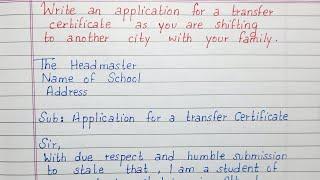 Write an application for a transfer
certificate as you are shifting
to another city with your family.
The Headmaster
Name of School
Address
Sub: Application for a transfer Certificate
Sir,
With due respect and humble submission
to state that, I am a student of